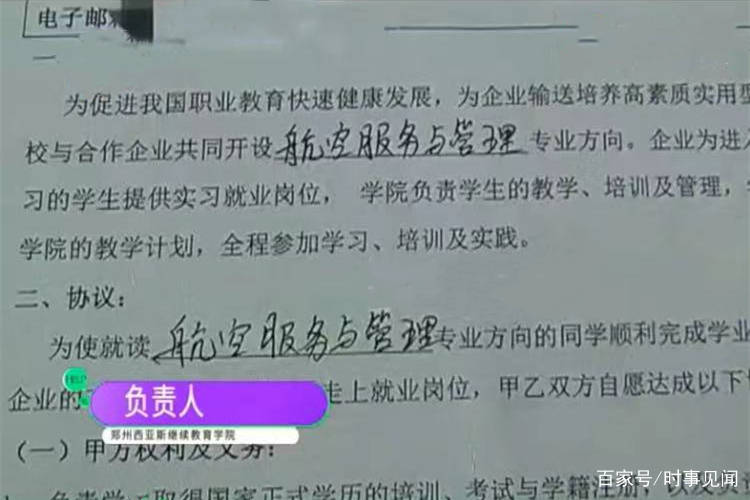 电子邮
为促进我国职业教育快速健康发展，为企业输送培养高素质实用型
校与合作企业共同开设航空服务与管理专业方向。企业为进入
习的学生提供实习就业岗位， 学院负责学生的教学、培训及管理，
学院的教学计划，全程参加学习、培训及实践。
二、协议：
为使就读航空服务与管理专业方向的同学顺利完成学业
企业的
走上就业岗位，甲乙双方自愿达成以下
HELP
负责人
郑州西亚斯继续教育学院
（一）甲方权利及义务：
负责学 取得国家正式学历的培训、考试与学籍注册
百家号/时事见闻